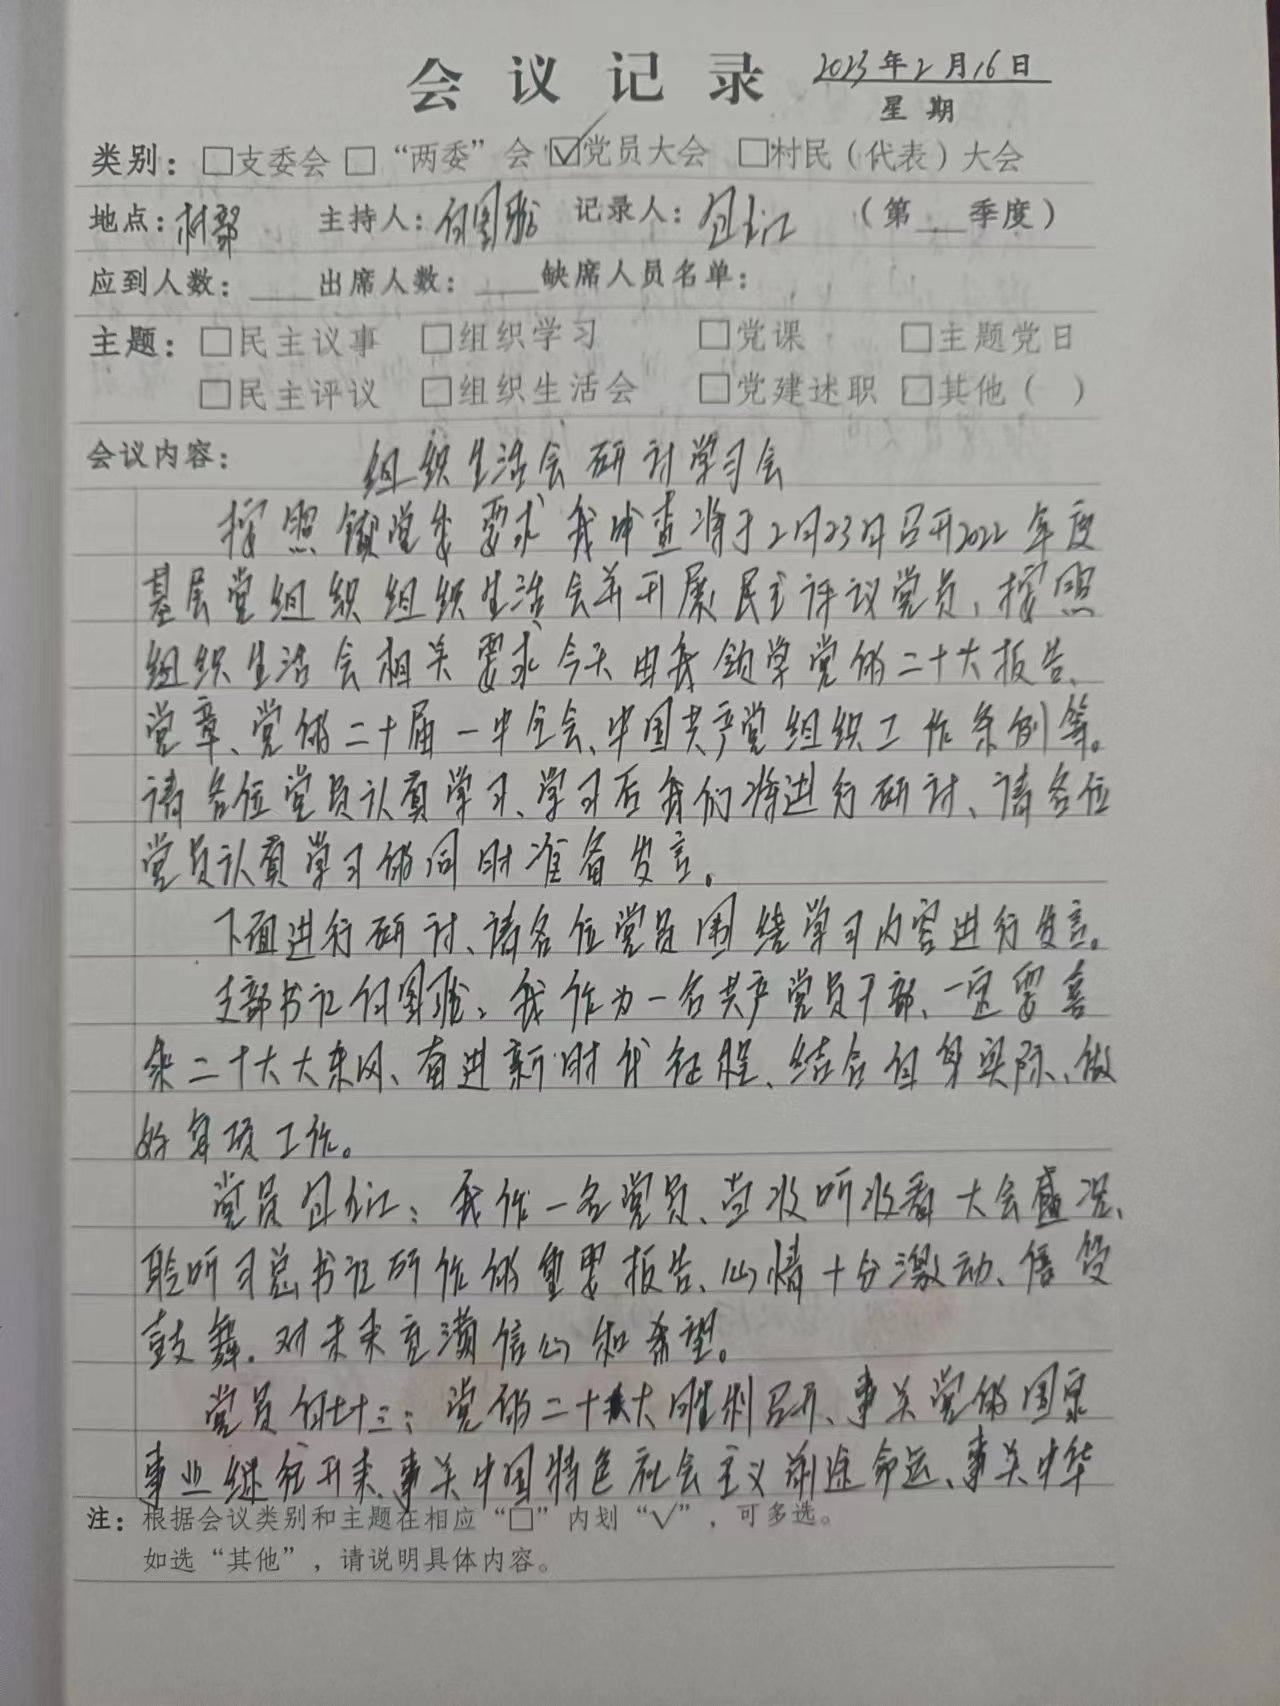 会议记录 2023年2月16日
星期
类别：□支委会 □“两委”会 ☑党员大会 □村民（代表）大会
地点：村部 主持人：付国 记录人： （第___季度）
应到人数：____ 出席人数：____ 缺席人员名单：
主题：□民主议事 □组织学习 □党课 □主题党日
□民主评议 □组织生活会 □党建述职 □其他（ ）
会议内容： 组织生活会研讨学习会
按照镇党委要求我村查将于2月23日召开2022年度
基层党组织组织生活会并开展民主评议党员，按照
组织生活会相关要求今天由我领学党的二十大报告、
党章、党的二十届一中全会、中国共产党组织工作条例等。
请各位党员认真学习、学习后我们将进行研讨、请各位
党员认真学习的同时准备发言。
下面进行研讨、请各位党员围绕学习内容进行发言。
支部书记付国：我作为一名共产党员干部、一定要喜
乘二十大大东风、奋进新时代征程、结合自身实际、做
好各项工作。
党员：我作一名党员、当收听收看大会盛况、
聆听习总书记所作的重要报告、心情十分激动、倍受
鼓舞．对未来充满信心和希望。
党员付七十三：党的二十大胜利召开、事关党的国家
事业继往开来、事关中国特色社会主义前途命运、事关中华
注：根据会议类别和主题在相应“□”内划“√”，可多选。
如选“其他”，请说明具体内容。